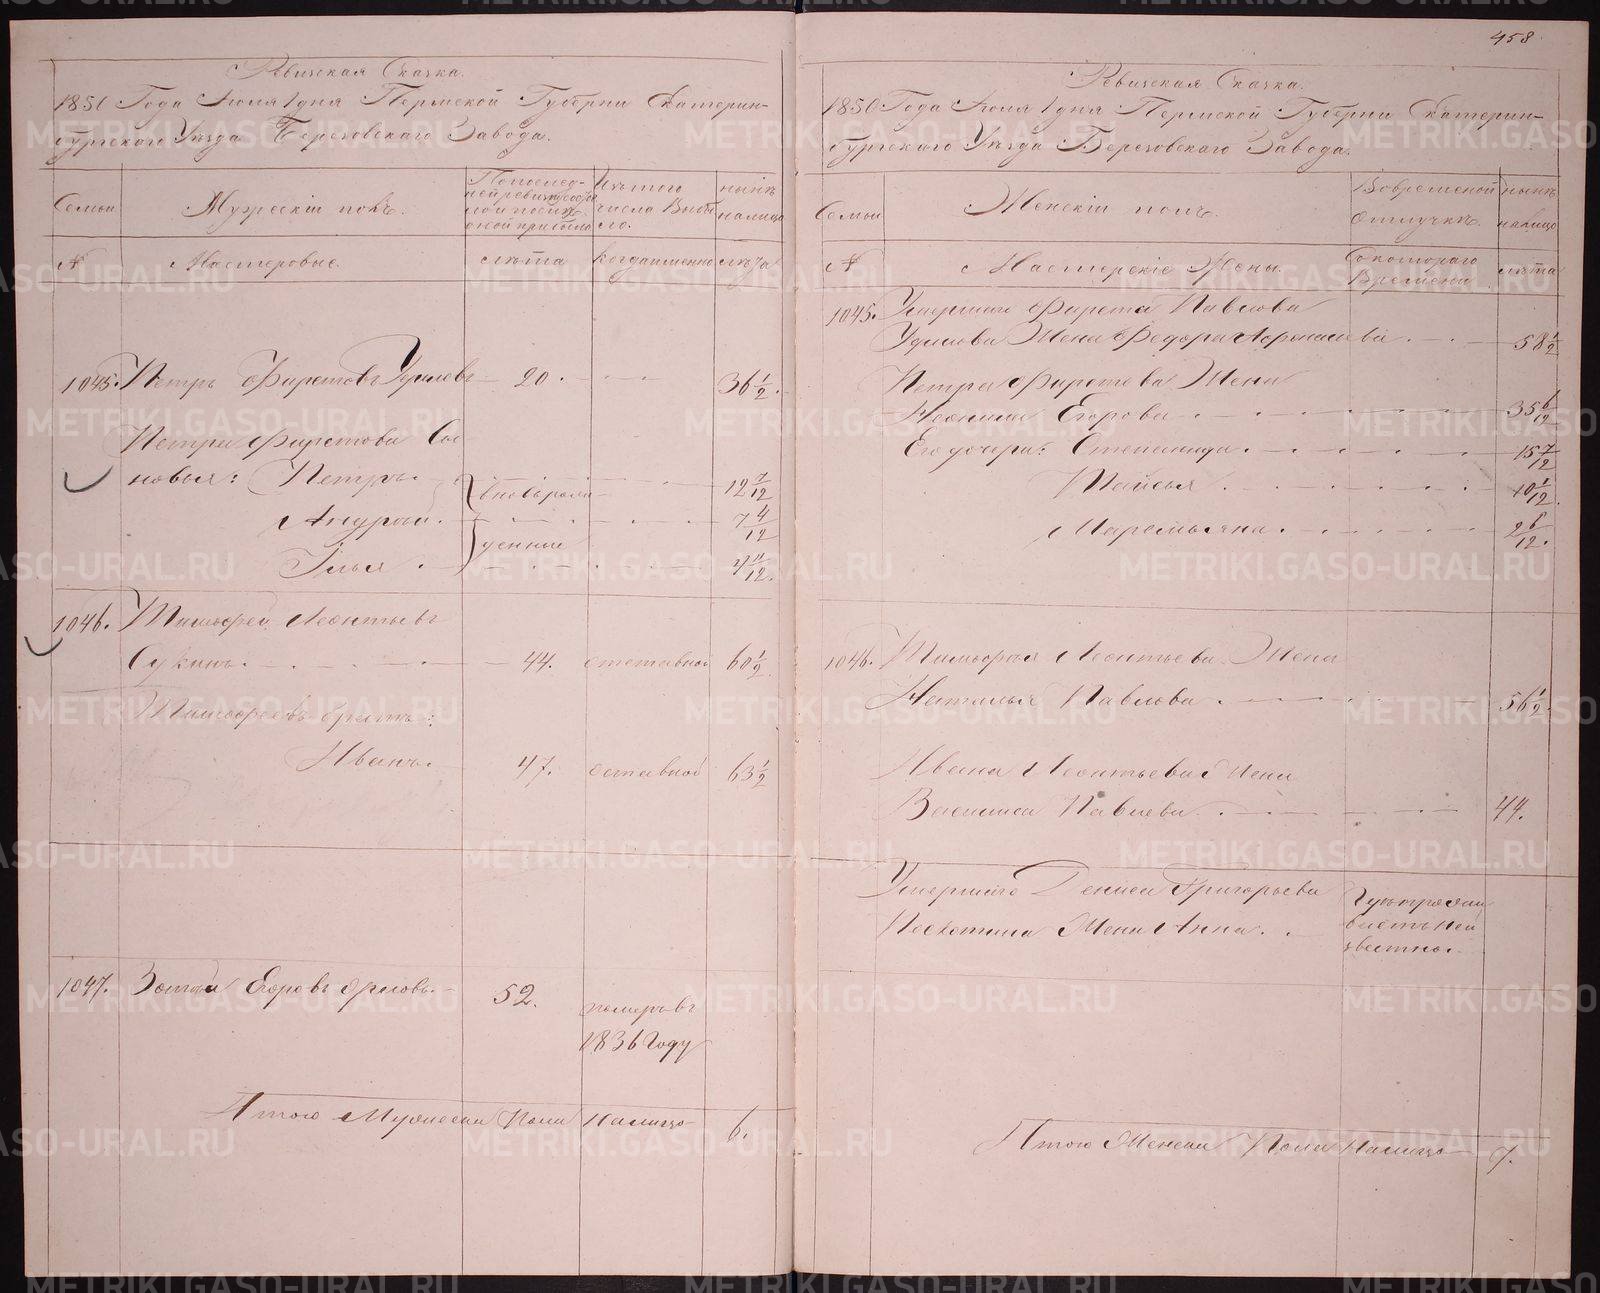 458
Ревизская Сказка.
1850 Года Июля 1 дня Пермской Губернии Екатерин-
бургского Уезда Березовскаго Завода.
Семьи
Мужескій полъ.
По послед-
ней ревизіи
Изъ того
числа выбы
ло.
ныне
налицо
№
Мастеровые.
лета
когда именно
лета
1045. Петръ Фирстовъ 20. 36 1/2.
Петра Фирстова Сы
новья: Петръ. вновь рож 12 7/12
Андрей. 7 4/12
денные
Илья. 4 11/12
1046. Тимофей Леонтьевъ
Сукинъ. 44. отставной 60 1/2
Тимофеевъ братъ:
Иванъ. 47. отставной 63 1/2
1047. Егоровъ Орловъ. 52. померъ въ
1836 году
Итого Мужеска Пола Налицо 6.
Ревизская Сказка.
1850 Года Июля 1 дня Пермской Губернии Екатерин-
бургского Уезда Березовскаго Завода.
Семьи
Женскій полъ.
Во временной
отлучке.
ныне
налицо
№
Мастерскіе Жены.
С котораго
времени
лета
1045. Умершаго Фирста Павлова
Жена Федора 58 1/2
Петра Фирстова Жена
Егорова 35 6/12
Его дочери: Степанида. 15 7/12
Таисья 10 1/12
Маремьяна. 2 6/12.
1046. Тимофея Леонтьева Жена
Наталья Павлова 56 1/2
Ивана Леонтьева Жена
Василиса Павлова 44.
Умершаго Дениса Григорьева
Жена Анна.
Итого Женска Пола Налицо 7.
METRIKI.GASO-URAL.RU